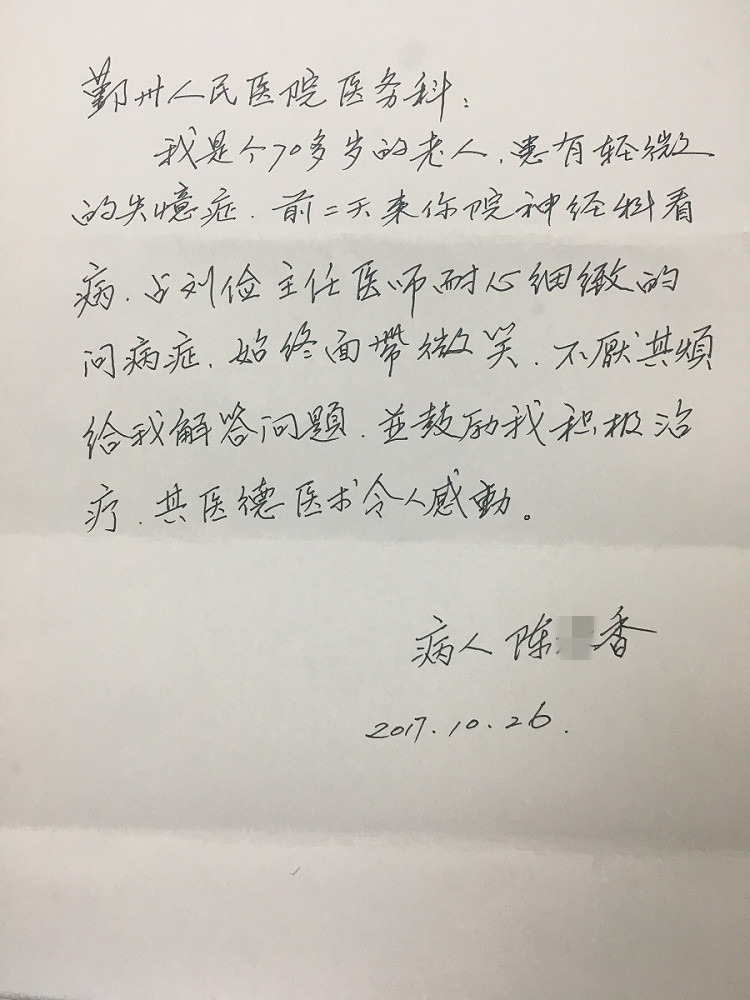 鄞州人民医院医务科：
我是个70多岁的老人，患有轻微
的失憶症．前二天来你院神经科看
病．刘俭主任医师耐心细緻的
问病症．始终面帶微笑．不厭其煩
给我解答问題．並鼓励我积极治
疗．其医德医术令人感動。
病人 陈 香
2017.10.26.